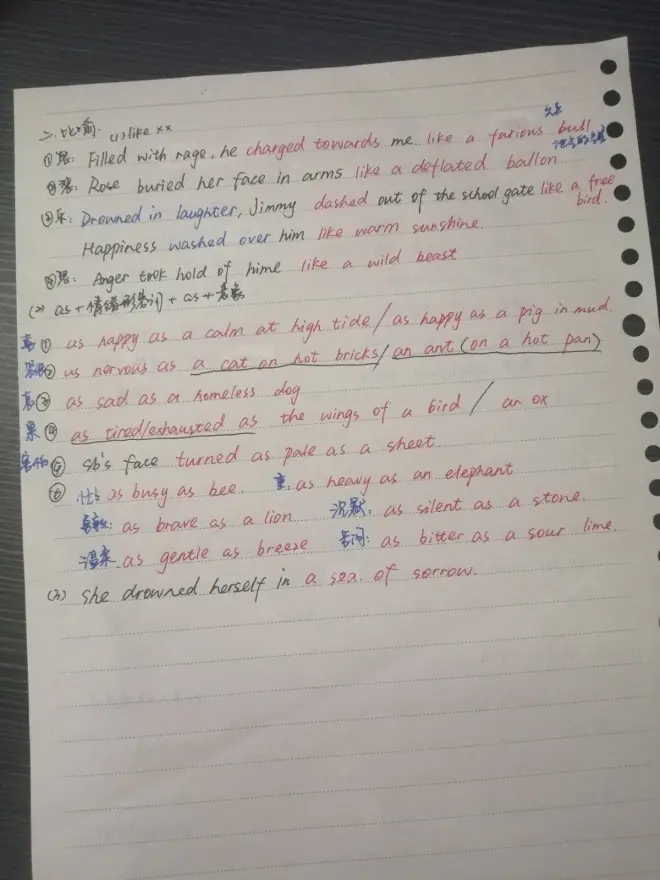 二.比喻. (1) like xx
公牛
①怒: Filled with rage, he charged towards me like a farious bull
泄气的气球
②强: Rose buried her face in arms like a deflated ballon
③乐: Drowned in laughter, Jimmy dashed out of the school gate like a free bird.
Happiness washed over him like warm sunshine.
④怒: Anger took hold of hime like a wild beast
(2) as + 情绪形容词 + as + 意象
喜① as happy as a calm at high tide / as happy as a pig in mud.
② us nervous as a cat on hot bricks / an ant (on a hot pan)
③ as sad as a homeless dog
累④ as tired/exhausted as the wings of a bird / an ox
害怕⑤ sb's face turned as pale as a sheet
⑥ 忙: as busy as bee. 重: as heavy as an elephant
勇敢: as brave as a lion 沉默: as silent as a stone.
温柔. as gentle as breeze 苦闷: as bitter as a sour lime.
(3) she drowned herself in a sea of sorrow.